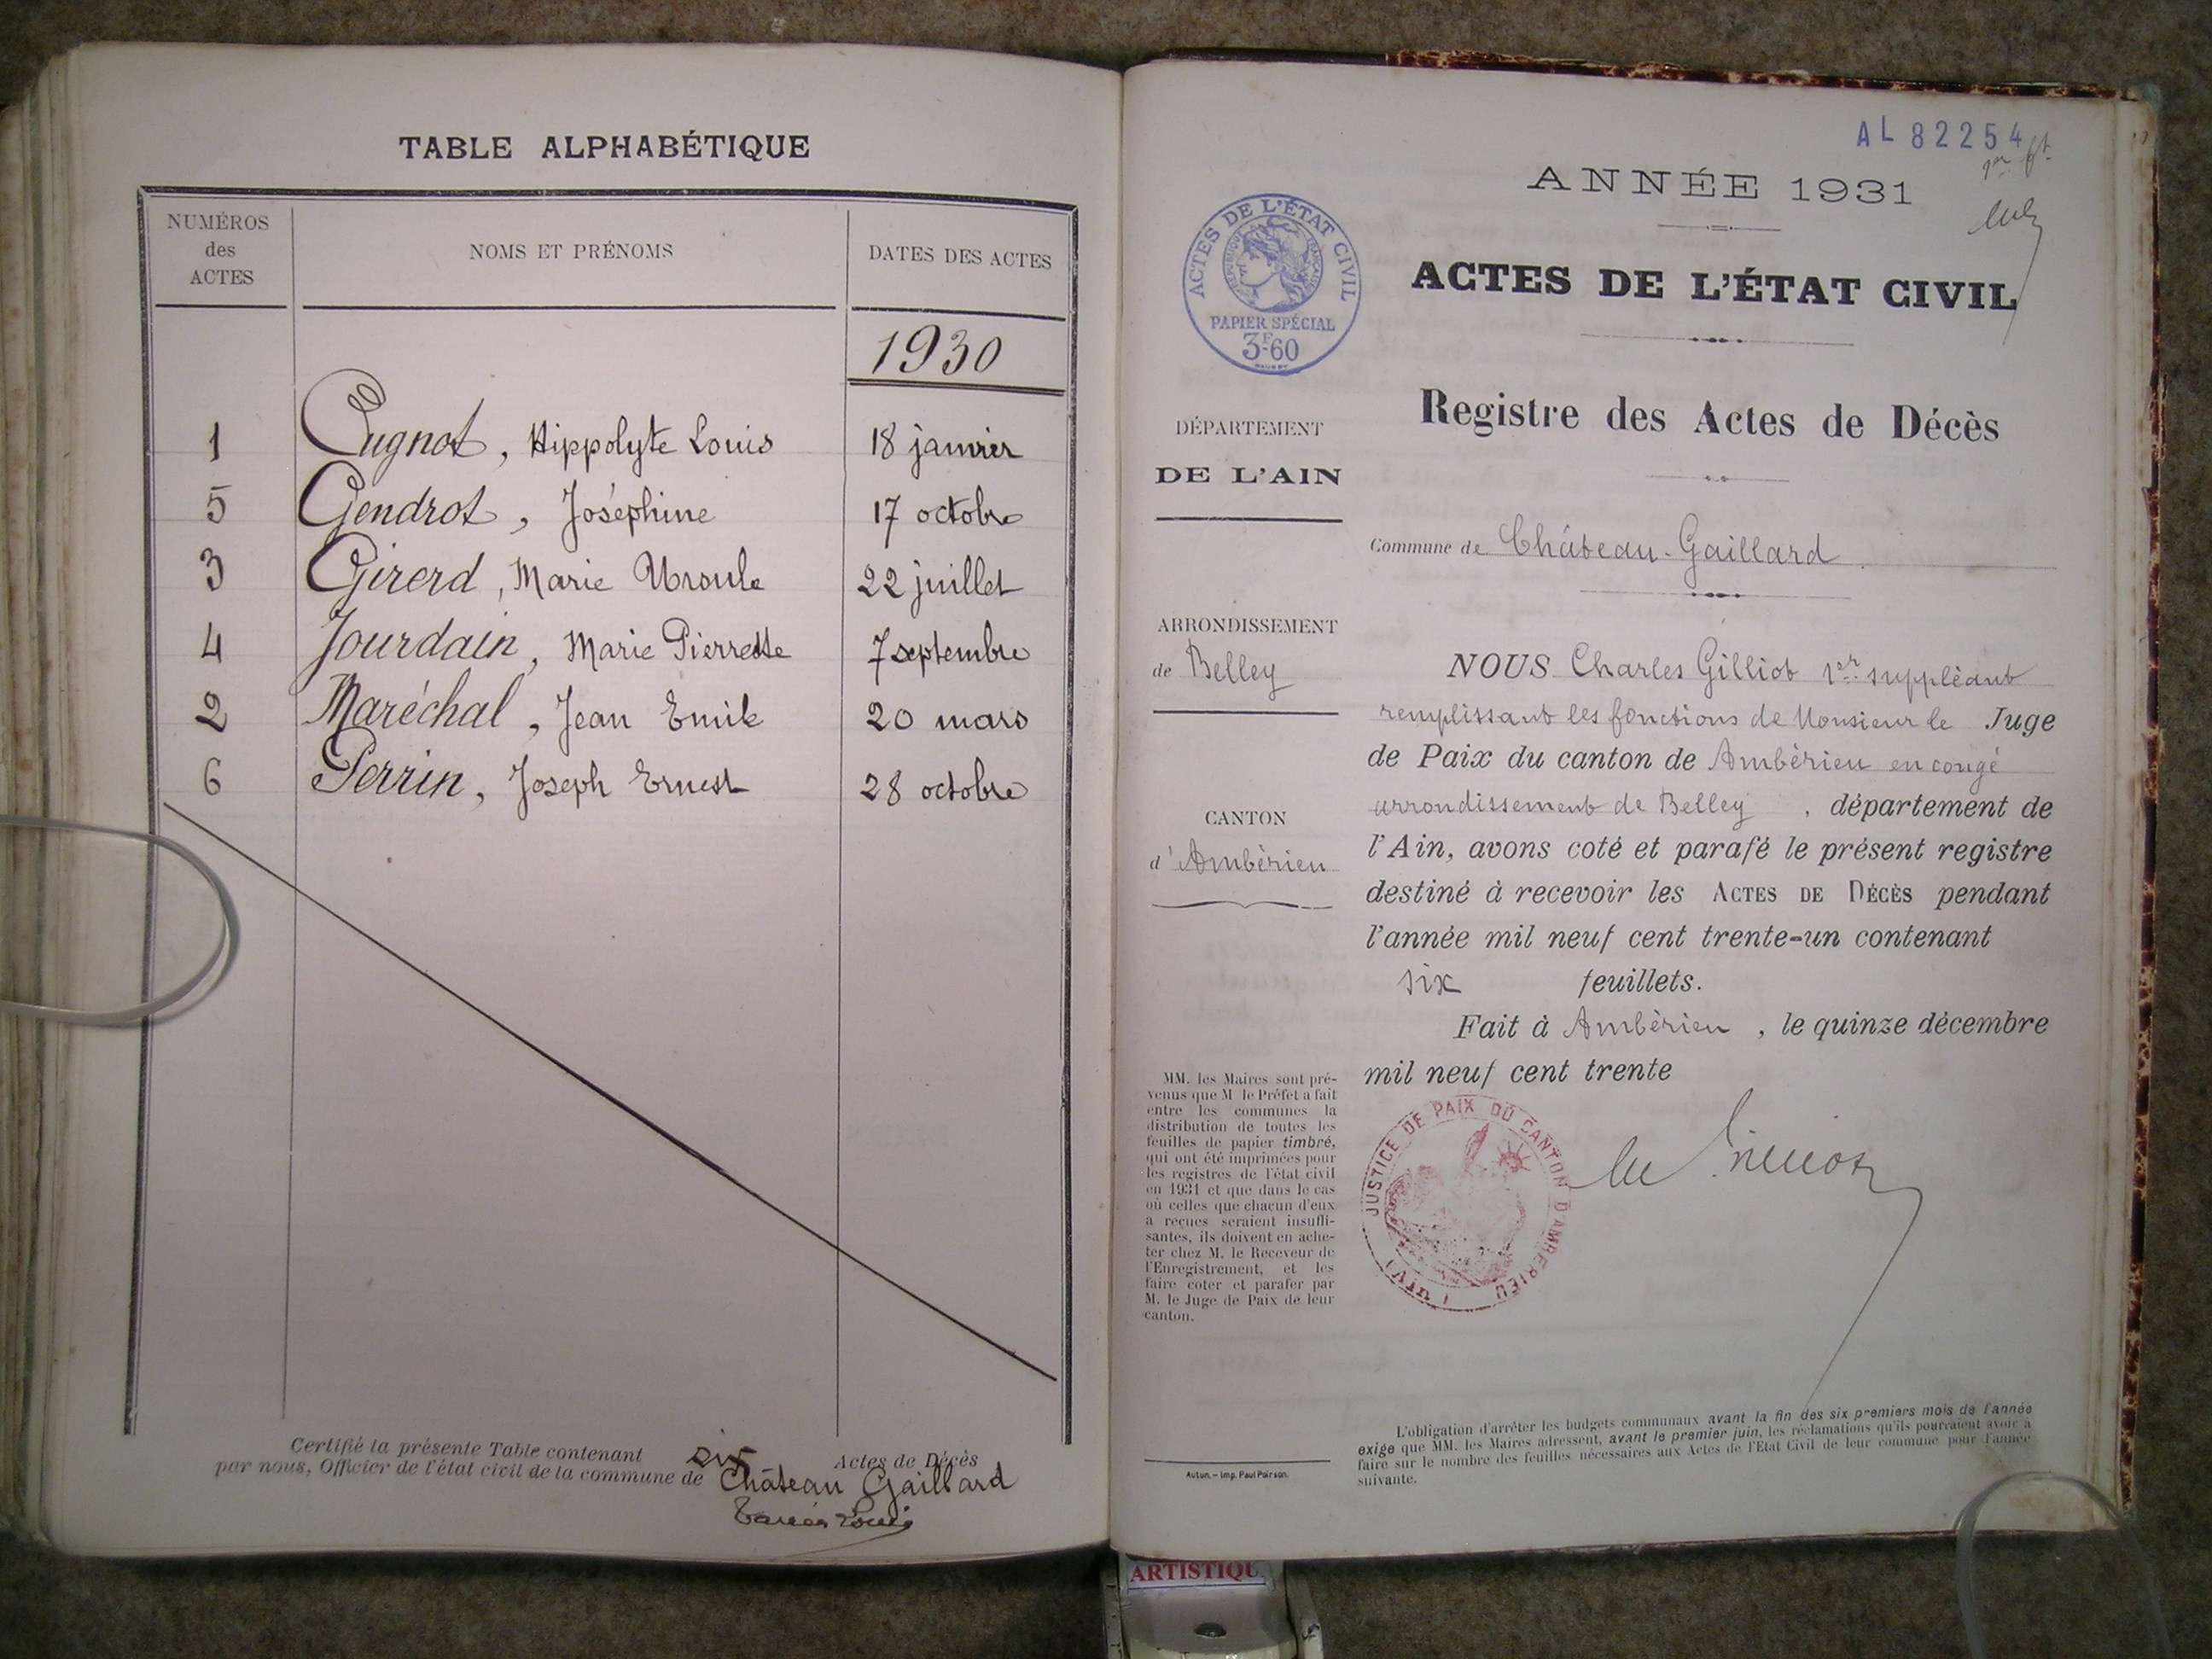 TABLE ALPHABÉTIQUE
NUMÉROS
des
ACTES
NOMS ET PRÉNOMS
DATES DES ACTES
1930
1 Cugnot, Hippolyte Louis 18 janvier
5 Gendrot, Joséphine 17 octobre
3 Girerd, Marie Ursule 22 juillet
4 Jourdain, Marie Pierrette 7 septembre
2 Maréchal, Jean Emile 20 mars
6 Perrin, Joseph Ernest 28 octobre
Certifié la présente Table contenant six Actes de Décès
par nous, Officier de l'état civil de la commune de Château Gaillard
AL 82254
ANNÉE 1931
ACTES DE L'ÉTAT CIVIL
RÉPUBLIQUE FRANÇAISE
PAPIER SPÉCIAL
3F60
ACTES DE L'ÉTAT CIVIL
Registre des Actes de Décès
DÉPARTEMENT
DE L'AIN
Commune de Château-Gaillard.
ARRONDISSEMENT
de Belley
CANTON
d'Ambérieu
NOUS Charles Gilliot 1er suppléant
remplissant les fonctions de Monsieur le Juge
de Paix du canton de Ambérieu en congé
arrondissement de Belley, département de
l'Ain, avons coté et parafé le présent registre
destiné à recevoir les ACTES DE DÉCÈS pendant
l'année mil neuf cent trente-un contenant
six feuillets.
Fait à Ambérieu, le quinze décembre
mil neuf cent trente
MM. les Maires sont pré-
venus que M le Préfet a fait
entre les communes la
distribution de toutes les
feuilles de papier timbré,
qui ont été imprimées pour
les registres de l'état civil
en 1931 et que dans le cas
où celles que chacun d'eux
a reçues seraient insuffi-
santes, ils doivent en ache-
ter chez M. le Receveur de
l'Enregistrement, et les
faire coter et parafer par
M. le Juge de Paix de leur
canton.
JUSTICE DE PAIX DU CANTON D'AMBERIEU
(AIN)
Autun. – Imp. Paul Poirson.
L'obligation d'arrêter les budgets communaux avant la fin des six premiers mois de l'année
exige que MM. les Maires adressent, avant le premier juin, les réclamations qu'ils pourraient avoir à
faire sur le nombre des feuilles nécessaires aux Actes de l'Etat Civil de leur commune pour l'année
suivante.
ARTISTIQU